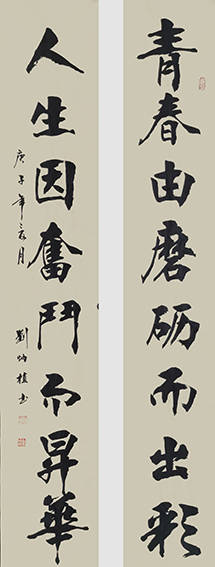 青春由磨砺而出彩
人生因奮鬥而昇華
庚子年之夏月
劉炳植書